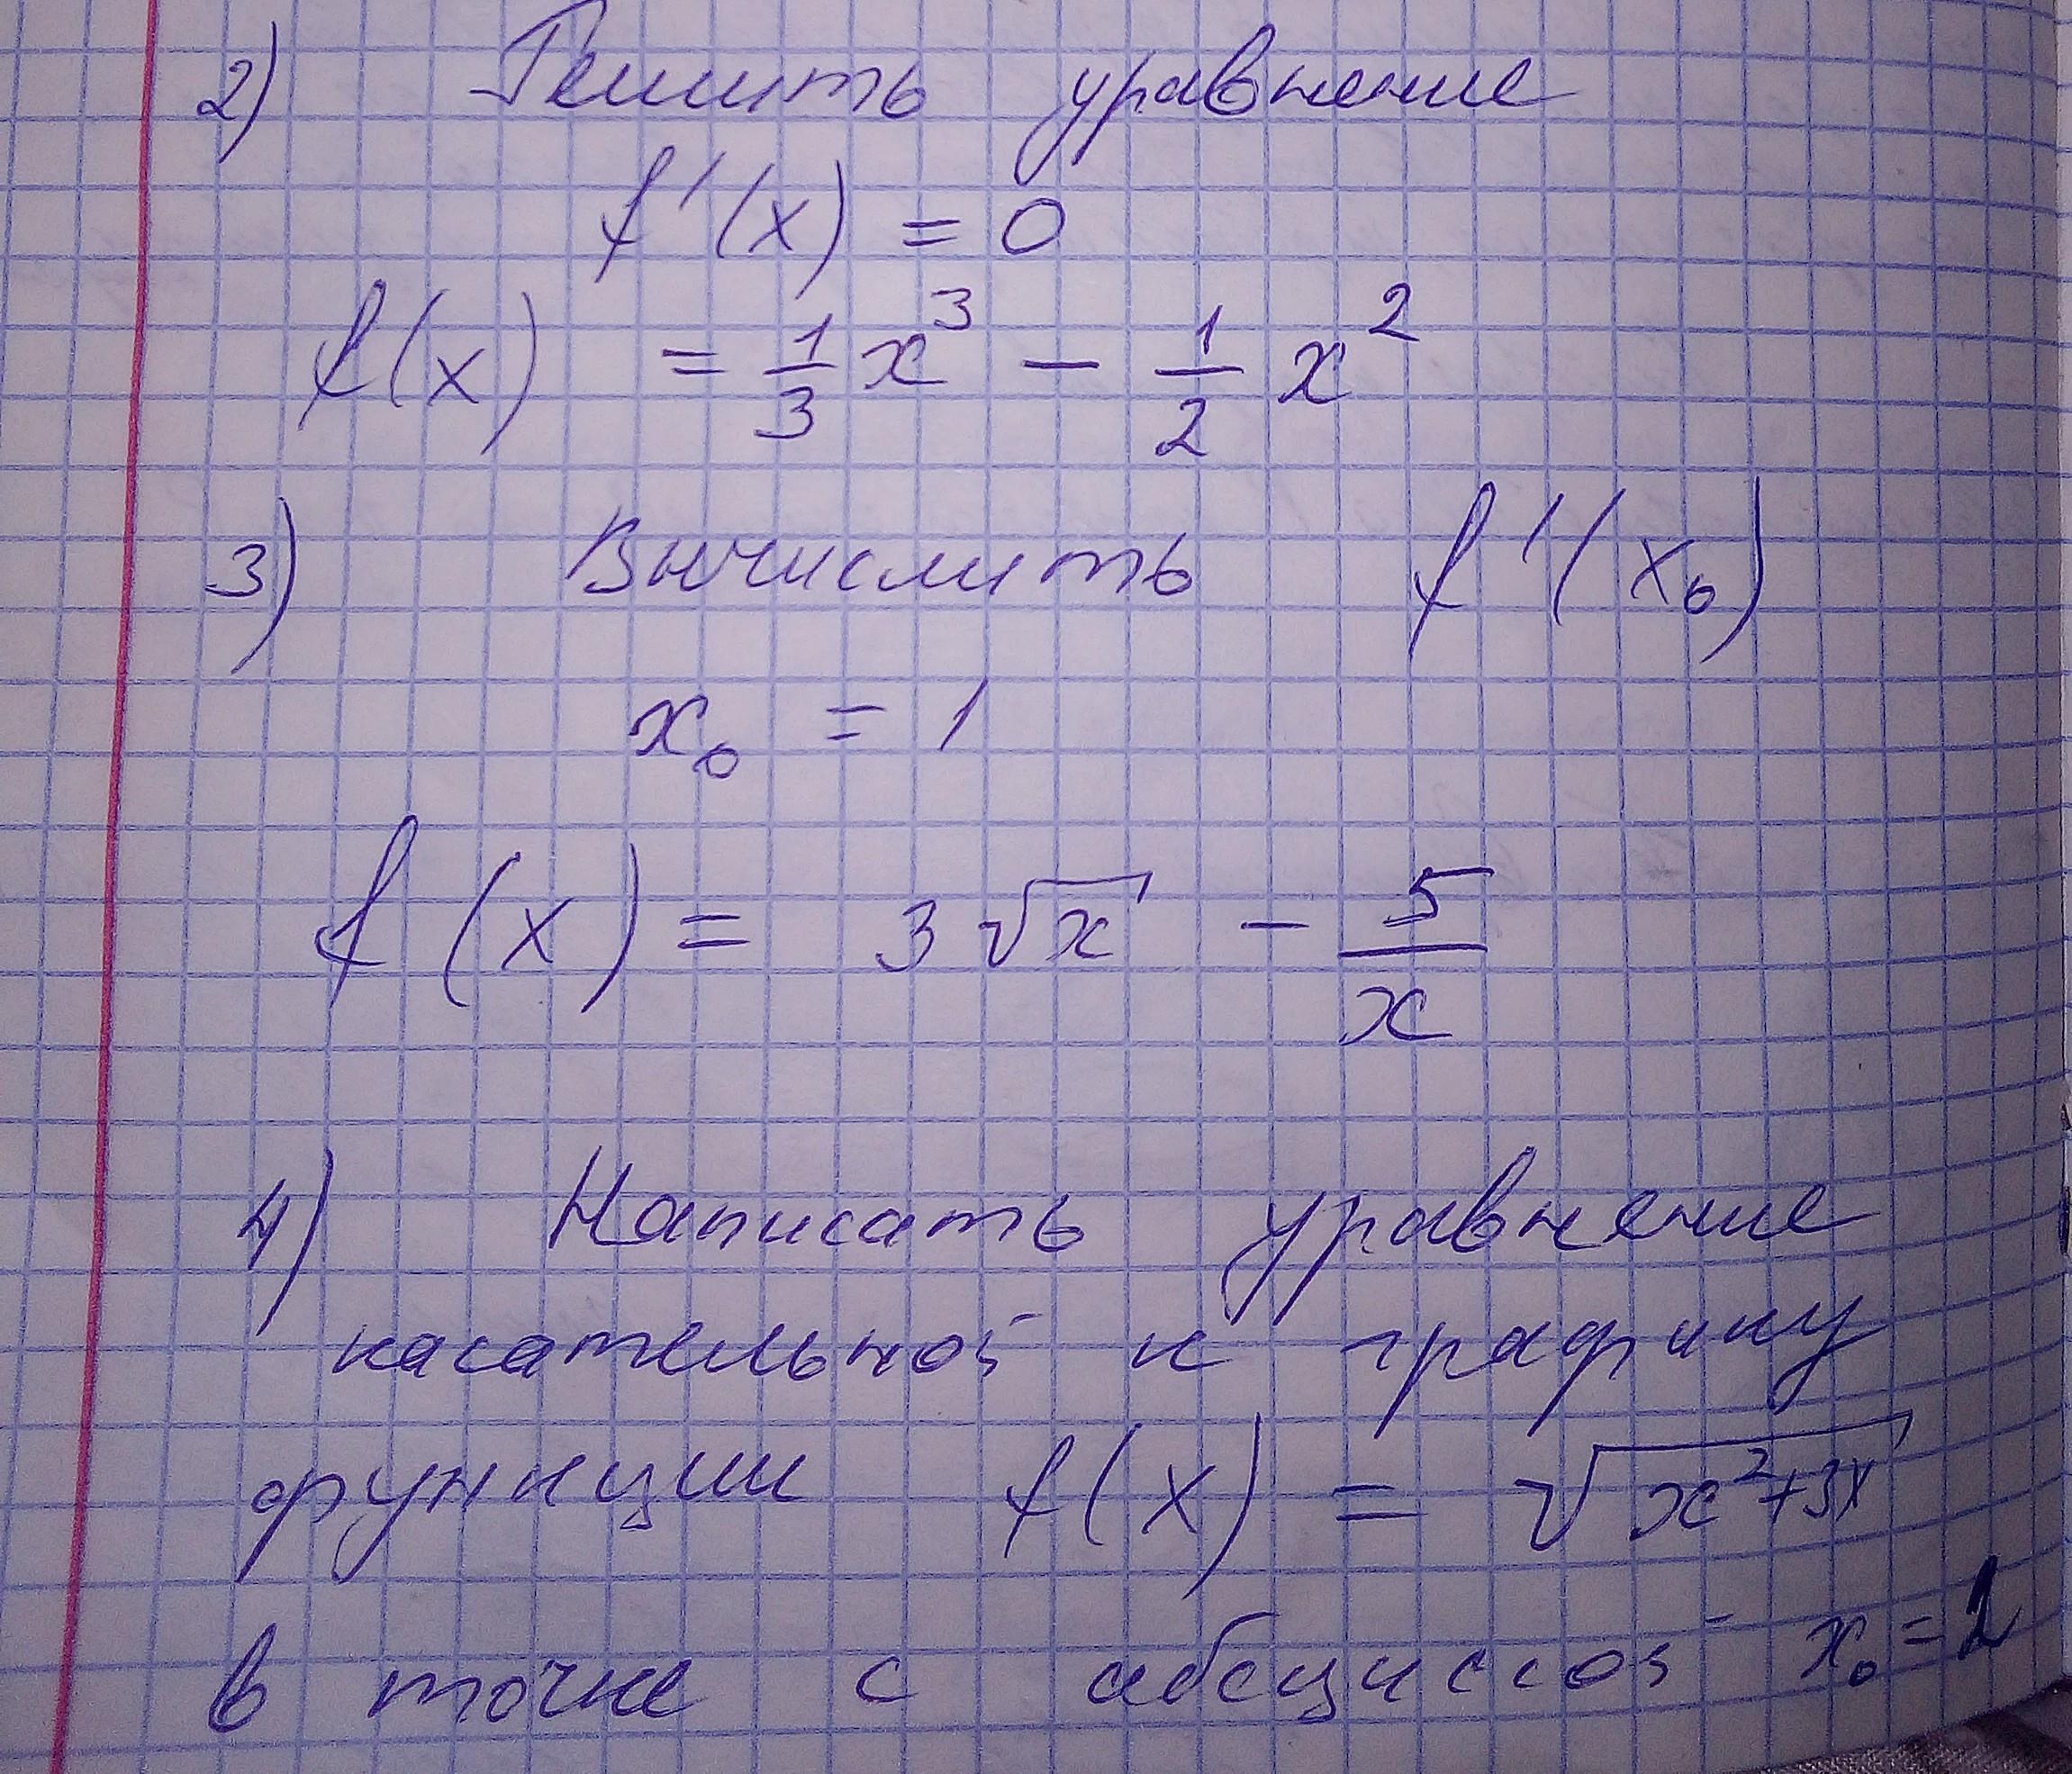 2) Решить уравнение
f'(x) = 0
f(x) = 1/3 x³ - 1/2 x²
3) Вычислить f'(x₀)
x₀ = 1
f(x) = 3√x - 5/x
4) Написать уравнение
касательной к графику
функции f(x) = √(x²+3x)
в точке с абсциссой x₀ = 2